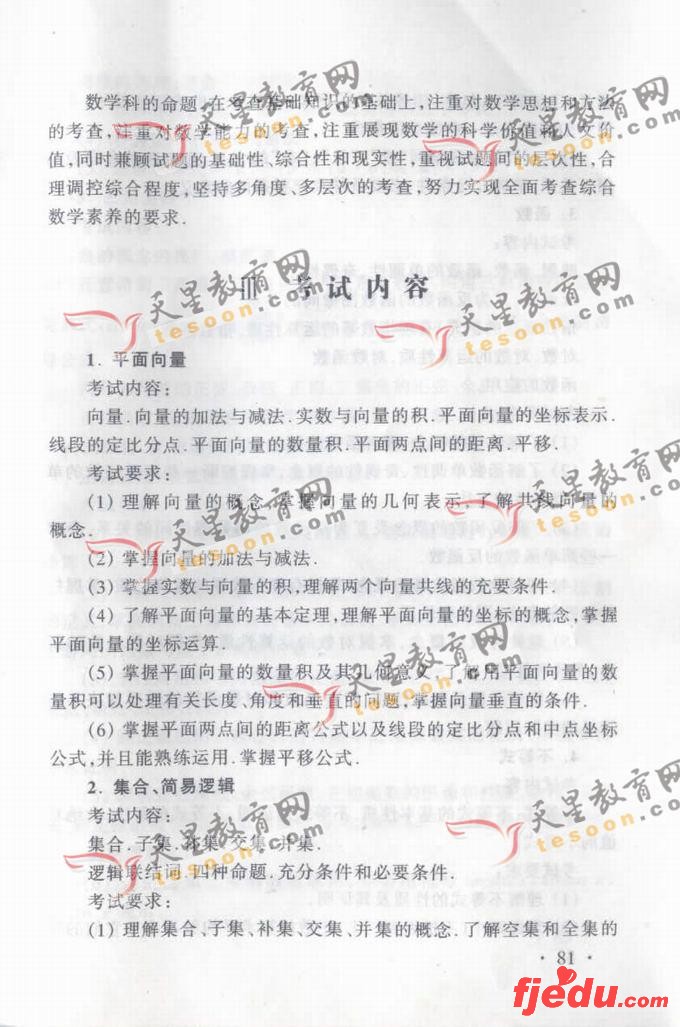 数学科的命题,在考查基础知识的基础上,注重对数学思想和方法
的考查,注重对数学能力的考查,注重展现数学的科学价值和人文价
值,同时兼顾试题的基础性、综合性和现实性,重视试题间的层次性,合
理调控综合程度,坚持多角度、多层次的考查,努力实现全面考查综合
数学素养的要求.
Ⅲ 考试内容
1. 平面向量
考试内容:
向量.向量的加法与减法.实数与向量的积.平面向量的坐标表示.
线段的定比分点.平面向量的数量积.平面两点间的距离.平移.
考试要求:
(1) 理解向量的概念,掌握向量的几何表示,了解共线向量的
概念.
(2) 掌握向量的加法与减法.
(3) 掌握实数与向量的积,理解两个向量共线的充要条件.
(4) 了解平面向量的基本定理,理解平面向量的坐标的概念,掌握
平面向量的坐标运算.
(5) 掌握平面向量的数量积及其几何意义,了解用平面向量的数
量积可以处理有关长度、角度和垂直的问题,掌握向量垂直的条件.
(6) 掌握平面两点间的距离公式以及线段的定比分点和中点坐标
公式,并且能熟练运用.掌握平移公式.
2. 集合、简易逻辑
考试内容:
集合.子集.补集.交集.并集.
逻辑联结词.四种命题.充分条件和必要条件.
考试要求:
(1) 理解集合、子集、补集、交集、并集的概念.了解空集和全集的
· 81 ·
天星教育网
tesoon.com
天星教育网
tesoon.com
天星教育网
tesoon.com
天星教育网
tesoon.com
天星教育网
tesoon.com
天星教育网
tesoon.com
天星教育网
tesoon.com
天星教育网
tesoon.com
fjedu.com